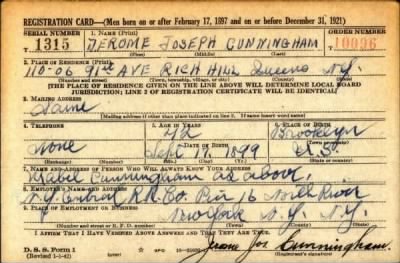 REGISTRATION CARD—(Men born on or after February 17, 1897 and on or before December 31, 1921)
SERIAL NUMBER 1. NAME (Print) ORDER NUMBER
T 1315 JEROME JOSEPH CUNNINGHAM 10096
(First) (Middle) (Last)
2. PLACE OF RESIDENCE (Print)
110-06 91st AVE RICH HILL Queens N.Y.
(Number and street) (Town, township, village, or city) (County) (State)
[THE PLACE OF RESIDENCE GIVEN ON THE LINE ABOVE WILL DETERMINE LOCAL BOARD
JURISDICTION; LINE 2 OF REGISTRATION CERTIFICATE WILL BE IDENTICAL]
3. MAILING ADDRESS
Same
[Mailing address if other than place indicated on line 2. If same insert word same]
4. TELEPHONE 5. AGE IN YEARS 6. PLACE OF BIRTH
42 Brooklyn
DATE OF BIRTH (Town or county)
None Sept 17 1899 U.S.
(Exchange) (Number) (Mo.) (Day) (Yr.) (State or country)
7. NAME AND ADDRESS OF PERSON WHO WILL ALWAYS KNOW YOUR ADDRESS
Mabel Cunningham as above
8. EMPLOYER'S NAME AND ADDRESS
N.Y. Central R.R. Co. Pier 16 North River
9. PLACE OF EMPLOYMENT OR BUSINESS
New York N.Y. N.Y.
(Number and street or R. F. D. number) (Town) (County) (State)
I AFFIRM THAT I HAVE VERIFIED ABOVE ANSWERS AND THAT THEY ARE TRUE.
D. S. S. Form 1
(Revised 1-1-42) (over)
Jerome Jos Cunningham
(Registrant's signature)